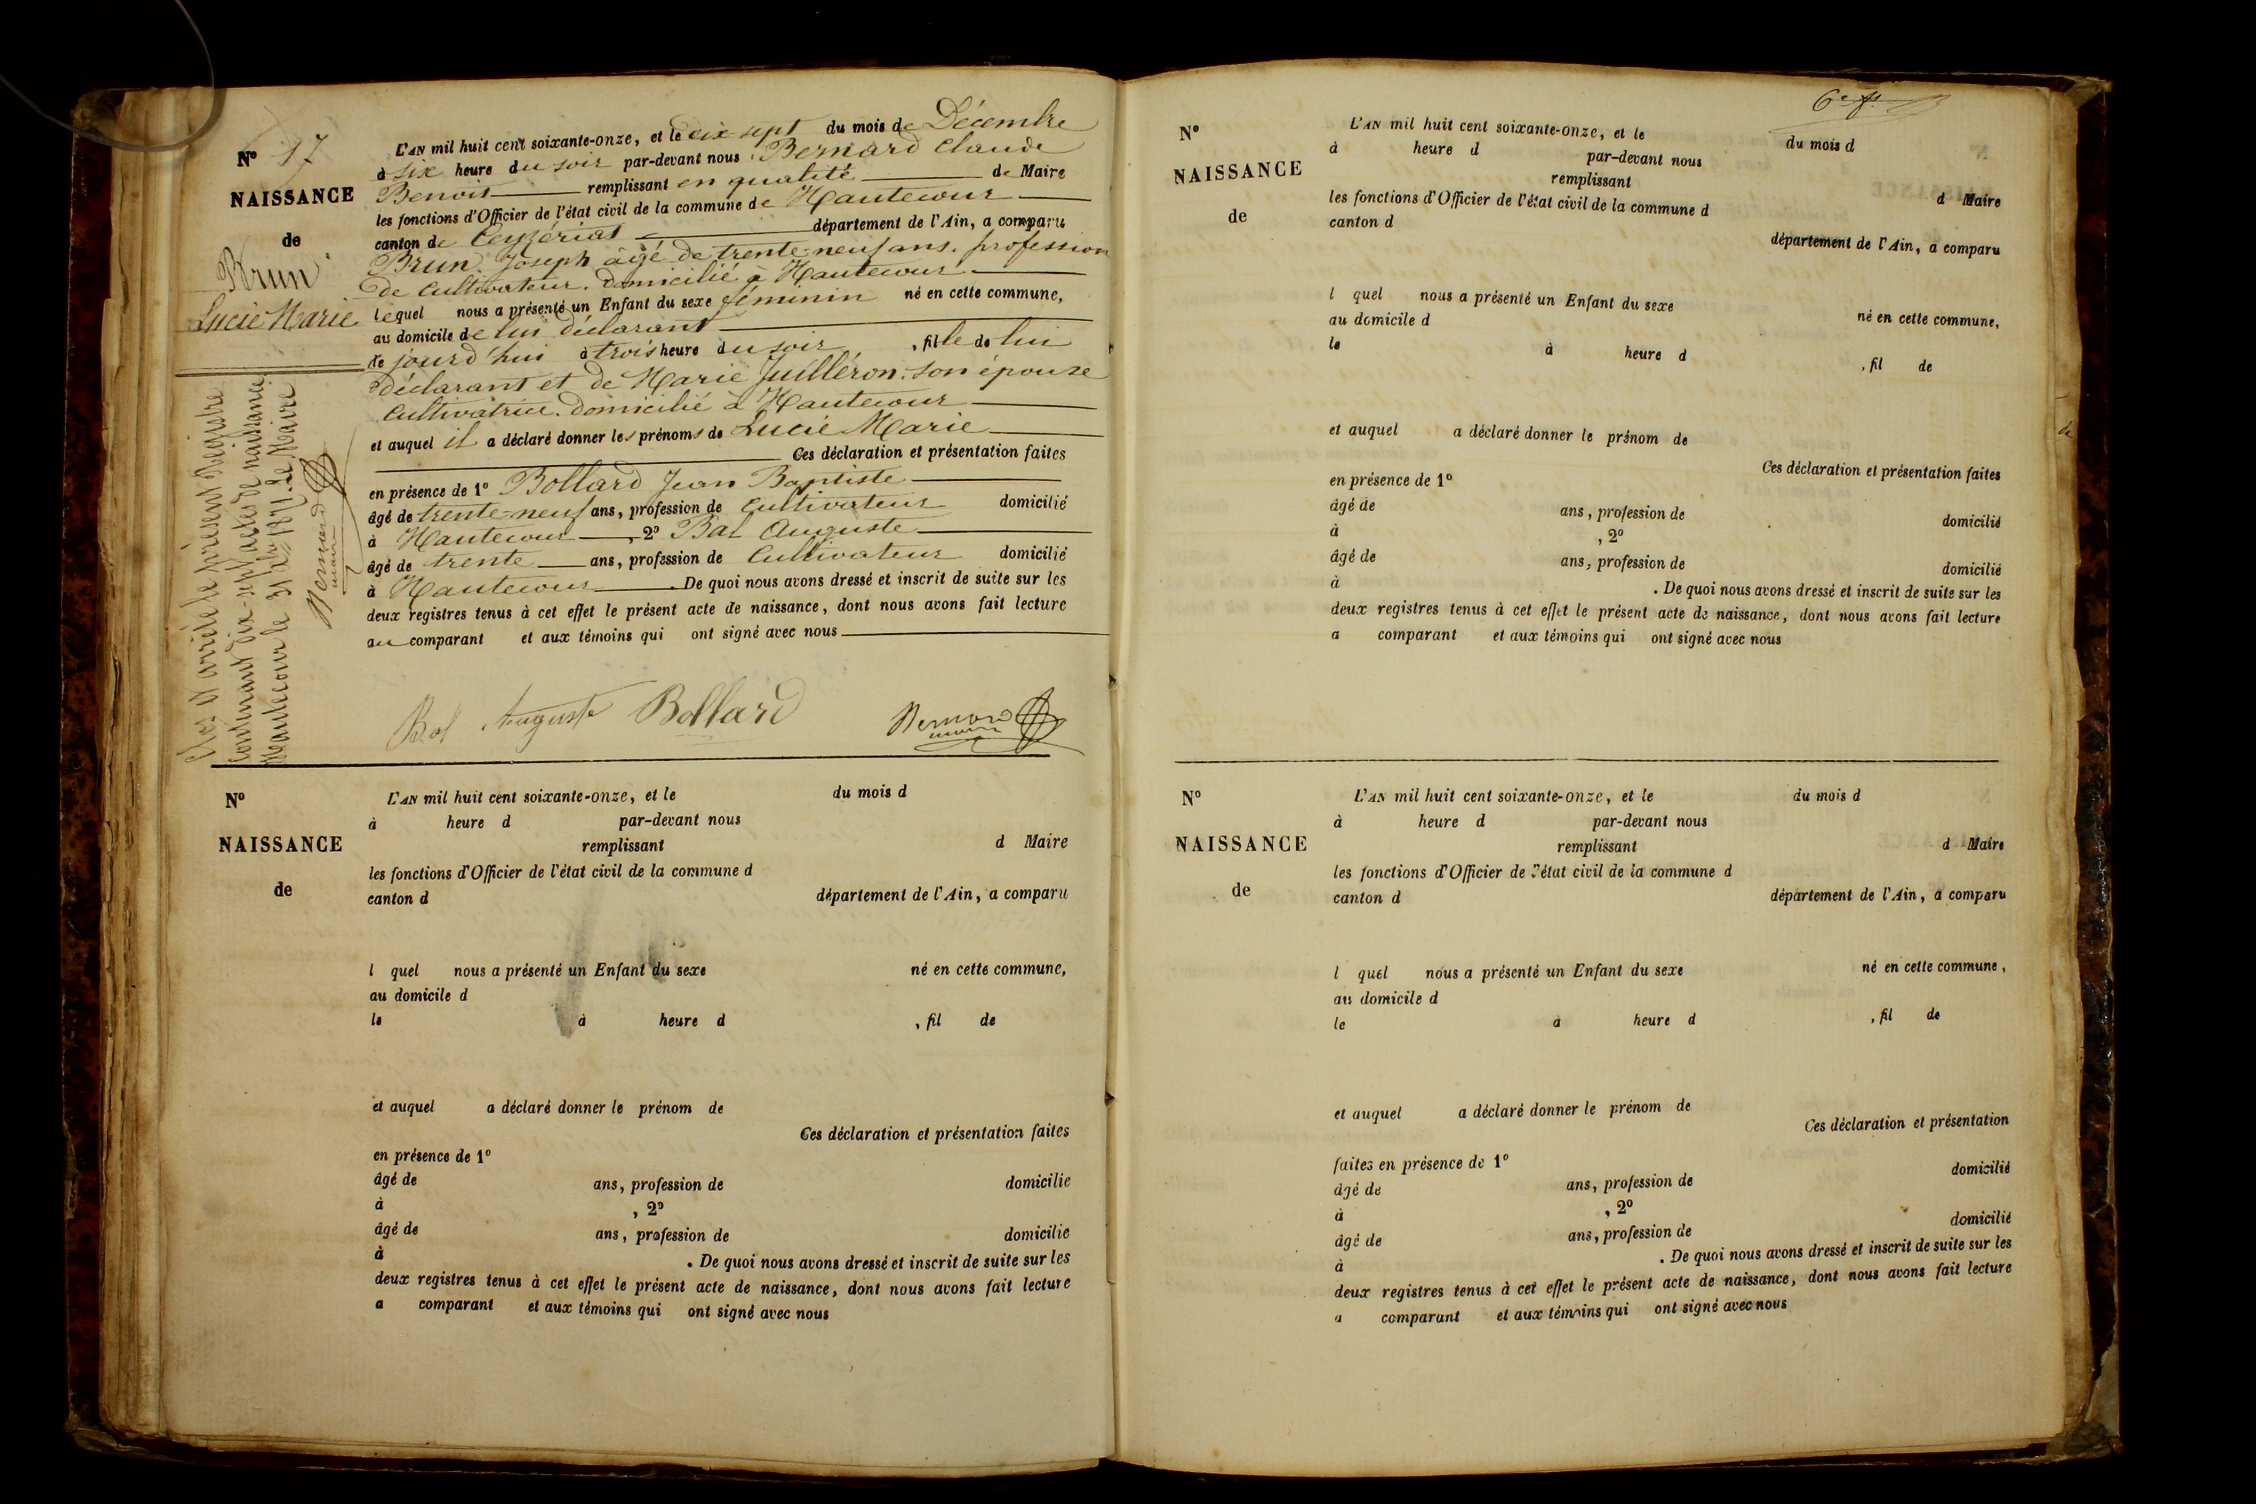 N° 17
NAISSANCE
de
Brun
Lucie Marie
L'AN mil huit cent soixante-onze, et le dix sept du mois de Décembre
à six heure du soir par-devant nous Bernard Claude
Benoit remplissant en qualité de Maire
les fonctions d'Officier de l'état civil de la commune de Hautecour
canton de Ceyzériat département de l'Ain, a comparu
Brun Joseph âgé de trente-neuf ans, profession
de cultivateur, domicilié à Hautecour
lequel nous a présenté un Enfant du sexe féminin né en cette commune,
au domicile de lui déclarant
le jourd'hui à trois heure du soir, fille de lui
déclarant et de Marie Juilléron, son épouse
cultivatrice domicilié à Hautecour
et auquel il a déclaré donner les prénoms de Lucie Marie
Ces déclaration et présentation faites
en présence de 1° Bollard Jean Baptiste
âgé de trente-neuf ans, profession de cultivateur domicilié
à Hautecour, 2° Bal Auguste
âgé de trente ans, profession de Cultivateur domicilié
à Hautecour. De quoi nous avons dressé et inscrit de suite sur les
deux registres tenus à cet effet le présent acte de naissance, dont nous avons fait lecture
au comparant et aux témoins qui ont signé avec nous
Bal Auguste Bollard Bernard
maire
Clos et arrêté le présent Registre
contenant dix-sept actes de naissance
Hautecour le 31 Xbre 1871. Le Maire
Bernard
maire
N°
NAISSANCE
de
L'AN mil huit cent soixante-onze, et le du mois d
à heure d par-devant nous
remplissant d Maire
les fonctions d'Officier de l'état civil de la commune d
canton d département de l'Ain, a comparu
l quel nous a présenté un Enfant du sexe né en cette commune,
au domicile d
le à heure d , fil de
et auquel a déclaré donner le prénom de
Ces déclaration et présentation faites
en présence de 1°
âgé de ans, profession de domicilié
à , 2°
âgé de ans, profession de domicilié
à . De quoi nous avons dressé et inscrit de suite sur les
deux registres tenus à cet effet le présent acte de naissance, dont nous avons fait lecture
a comparant et aux témoins qui ont signé avec nous
N°
NAISSANCE
de
L'AN mil huit cent soixante-onze, et le du mois d
à heure d par-devant nous
remplissant d Maire
les fonctions d'Officier de l'état civil de la commune d
canton d
département de l'Ain, a comparu
l quel nous a présenté un Enfant du sexe né en cette commune,
au domicile d
le à heure d , fil de
et auquel a déclaré donner le prénom de
Ces déclaration et présentation faites
en présence de 1°
âgé de ans, profession de domicilié
à , 2°
âgé de ans, profession de domicilié
à . De quoi nous avons dressé et inscrit de suite sur les
deux registres tenus à cet effet le présent acte de naissance, dont nous avons fait lecture
a comparant et aux témoins qui ont signé avec nous
N°
NAISSANCE
de
L'AN mil huit cent soixante-onze, et le du mois d
à heure d par-devant nous
remplissant d Maire
les fonctions d'Officier de l'état civil de la commune d
canton d département de l'Ain, a comparu
l quel nous a présenté un Enfant du sexe né en cette commune,
au domicile d
le à heure d , fil de
et auquel a déclaré donner le prénom de
Ces déclaration et présentation
faites en présence de 1°
âgé de ans, profession de domicilié
à , 2°
âgé de ans, profession de domicilié
à . De quoi nous avons dressé et inscrit de suite sur les
deux registres tenus à cet effet le présent acte de naissance, dont nous avons fait lecture
a comparant et aux témoins qui ont signé avec nous